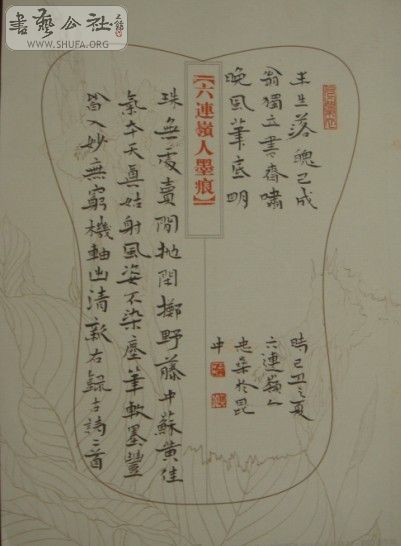 書藝公社
WWW.SHUFA.ORG
半生落魄已成
翁獨立書齋嘯
晚風筆底明
【六連嶺人墨痕】
珠無處賣閒拋閒擲野藤中蘇黃佳
氣本天真姑射風姿不染塵筆軟墨豐
皆入妙無窮機軸出清新右錄古詩二首
時己丑之夏
六連嶺人
於昆
中